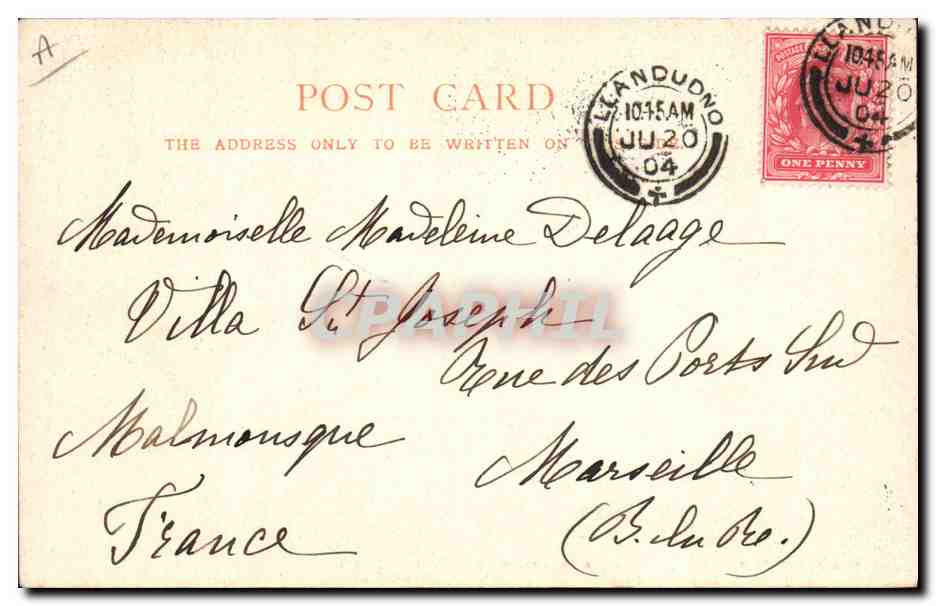 A
POST CARD
THE ADDRESS ONLY TO BE WRITTEN ON
LLANDUDNO
10.45AM
JU 20
04
LLANDUD
10.45AM
JU 20
04
POSTAGE
ONE PENNY
Mademoiselle Madeleine Delaage
Villa St Joseph
Rue des Ports Sud
Malmousque
Marseille
France
(B. du Re.)
CPAPHIL